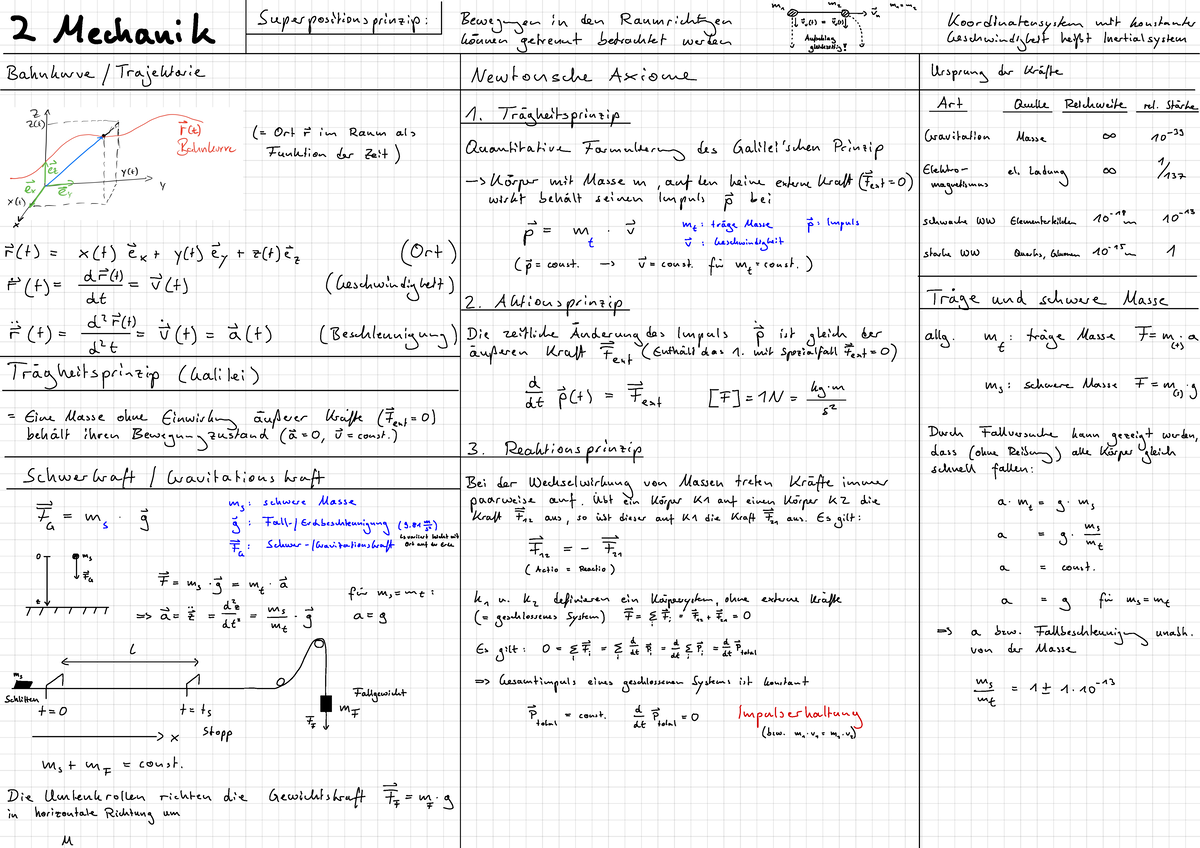 2 Mechanik
Superpositionsprinzip:
Bewegungen in den Raumrichtungen
können getrennt betrachtet werden
m₁ m₂ v⃗ₓ m₁ = m₂
Aufschlag
gleichzeitig!
Koordinatensystem mit konstanter
Geschwindigkeit heißt Inertialsystem
Bahnkurve / Trajektorie
z
z(t)
r⃗(t)
Bahnkurve
e⃗z
e⃗x
e⃗y
y(t)
y
x(t)
x
(= Ort r⃗ im Raum als
Funktion der Zeit)
r⃗(t) = x(t) e⃗x + y(t) e⃗y + z(t) e⃗z (Ort)
ṙ⃗(t) = dr⃗(t)/dt = v⃗(t) (Geschwindigkeit)
r̈⃗(t) = d²r⃗(t)/d²t = v̇⃗(t) = a⃗(t) (Beschleunigung)
Trägheitsprinzip (Galilei)
= Eine Masse ohne Einwirkung äußerer Kräfte (F⃗ext = 0)
behält ihren Bewegungszustand (a⃗ = 0, v⃗ = const.)
Schwerkraft / Gravitationskraft
F⃗G = ms · g⃗
ms: schwere Masse
g⃗: Fall-/Erdbeschleunigung (9.81 m/s²)
↳ variiert leicht mit
Ort auf der Erde
F⃗G: Schwer-/Gravitationskraft
0
ms
F⃗G
z
F⃗ = ms · g⃗ = mt · a⃗
=> a⃗ = z̈⃗ = d²z/dt² = ms/mt · g⃗
für ms = mt:
a = g
L
ms
Schlitten
t = 0
t = ts
Stopp
x
Fallgewicht
mF
F⃗F
ms + mF = const.
Die Umlenkrollen richten die Gewichtskraft F⃗F = mF · g
in horizontale Richtung um
M
Newtonsche Axiome
1. Trägheitsprinzip
Quantitative Formulierung des Galilei'schen Prinzip
-> Körper mit Masse m, auf den keine externe Kraft (F⃗ext = 0)
wirkt behält seinen Impuls p⃗ bei
p⃗ = mt · v⃗
mt: träge Masse p⃗: Impuls
v⃗: Geschwindigkeit
(p⃗ = const. -> v⃗ = const. für mt = const.)
2. Aktionsprinzip
Die zeitliche Änderung des Impuls ṗ⃗ ist gleich der
äußeren Kraft F⃗ext (Enthält das 1. mit Spezialfall F⃗ext = 0)
d/dt p⃗(t) = F⃗ext [F] = 1N = kg·m/s²
3. Reaktionsprinzip
Bei der Wechselwirkung von Massen treten Kräfte immer
paarweise auf. Übt ein Körper K1 auf einen Körper K2 die
Kraft F⃗₁₂ aus, so übt dieser auf K1 die Kraft F⃗₂₁ aus. Es gilt:
F⃗₁₂ = - F⃗₂₁
(Actio = Reactio)
K₁ u. K₂ definieren ein Körpersystem, ohne externe Kräfte
(= geschlossenes System) F⃗ = Σᵢ F⃗ᵢ = F⃗₁₂ + F⃗₂₁ = 0
Es gilt: 0 = Σᵢ F⃗ᵢ = Σᵢ d/dt p⃗ᵢ = d/dt Σᵢ p⃗ᵢ = d/dt p⃗total
=> Gesamtimpuls eines geschlossenen Systems ist konstant
p⃗total = const. d/dt p⃗total = 0 Impulserhaltung
(bzw. m₁·v₁ = m₂·v₂)
Ursprung der Kräfte
Art Quelle Reichweite rel. Stärke
Gravitation Masse ∞ 10⁻³⁹
Elektro-
magnetismus el. Ladung ∞ 1/137
schwache WW Elementarteilchen 10⁻¹⁸ m 10⁻¹³
starke WW Quarks, Gluonen 10⁻¹⁵ m 1
Träge und schwere Masse
allg. mt: träge Masse F = m(t) · a
ms: schwere Masse F = m(s) · g
Durch Fallversuche kann gezeigt werden,
dass (ohne Reibung) alle Körper gleich
schnell fallen:
a · mt = g · ms
a = g · ms/mt
a = const.
a = g für ms = mt
=> a bzw. Fallbeschleunigung unabh.
von der Masse
ms/mt = 1 ± 1·10⁻¹³